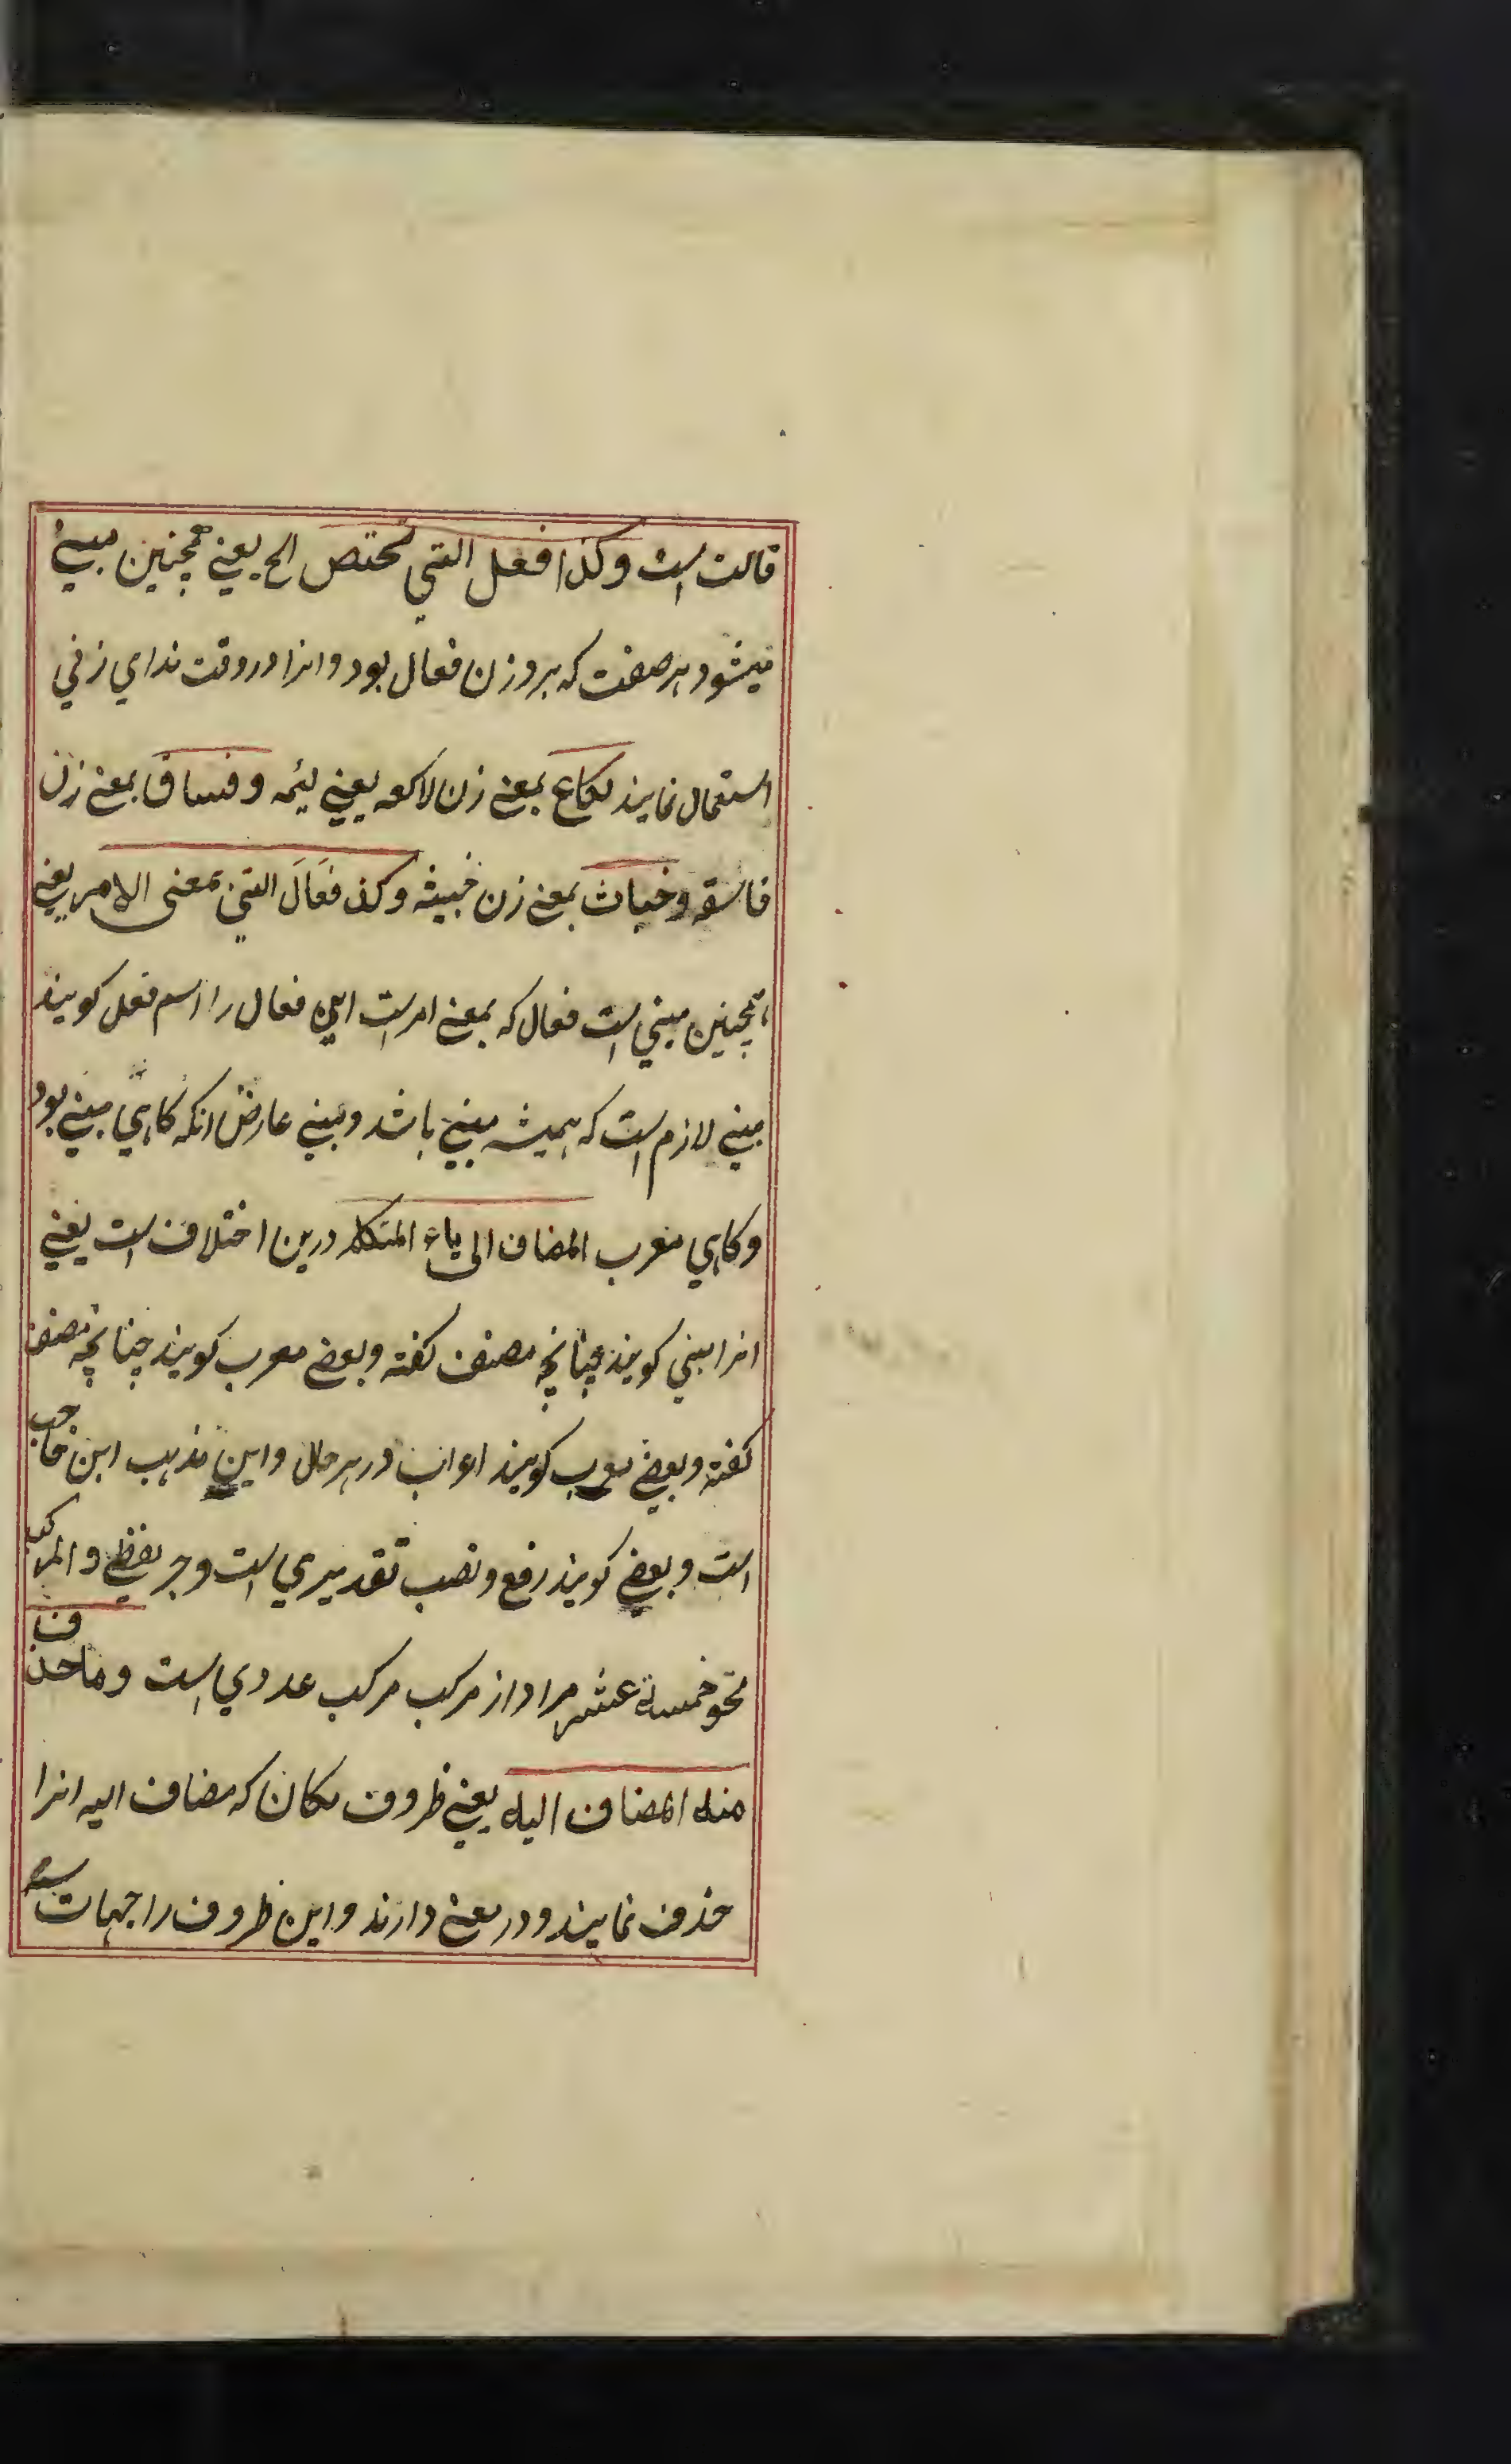 قالت است وکذا فعل التی تختص الخ یعنے همچنین مبنے
میشود هر صفت که بر وزن فعال بود وانرا در وقت ندای زنی
استعمال نمایند لکاع بمعنے زن لاکعه یعنے لئیمه وفساق بمعنے زن
فاسقه وخباث بمعنے زن خبیثه وکذ فَعَالَ التی بمعنی الامر یعنے
همچنین مبنی است فعال که بمعنے امر است این فعال را اسم فعل کویند
مبنے لازم است که همیشه مبنے باشد ومبنے عارض انکه کاهی مبنے بود
وکاهی معرب المضاف الی یاء المتکلم درین اختلاف است یعنے
انرا مبنی کویند چنانچه مصنف کفته وبعضے معرب کویند چنانچه مصنف
کفته وبعضے معرب کویند اعراب در هر حال واین مذهب ابن حاجب
است وبعضے کویند رفع ونصب تقدیری است وجر لفظے والمرکب
نحو خمسة عشر مراد از مرکب مرکب عددی است وماحذف
منه المضاف الیه یعنے ظروف مکان که مضاف الیه انرا
حذف نمایند ودر معنے دارند واین ظروف را جهات سته